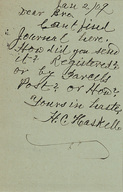 Jan 2/09
Dear Bro.
Can't find
Journal here.
How did you send
it? Registered?
or by Parcels
Post? or How?
Yours in haste
H.C. Haskell